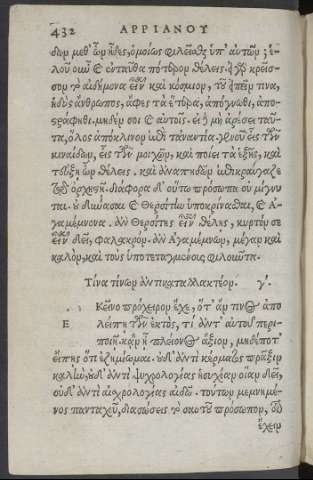 432 ΑΡΡΙΑΝΟΥ
δωμ μεθ' ὧμ ᾖδες, ὁμοίως φιλεῖσθς ὑπ' αὐτῶμ; ἑ-
λοῦ οὖμ & ἐνταῦθα πότερομ θέλεις. ἢ γδ κρεῖσ-
σομ τὸ αἰδήμονα εἶναι καὶ κόσμιομ, τοῦ εἰπεῖμ τινα,
ἡδὺς ἄνθρωπος, ἄφες τὰ ἕτερα, ἀπόγνωθι, ἀπο-
ςράφηθι. μηδέμ σοι & αὐτοῖς. εἰ ἢ μὴ ἀρέσει ταῦ-
τα, ὅλος ἀπόκλινομ ἐπὶ τἀναντία. γενοῦ εἷς τῶμ
κιναίδωμ, εἷς τῶμ μοιχῶμ, καὶ ποίει τὰ ἑξῆς, καὶ
τεύξη ὧμ θέλεις. καὶ ἀναπηδῶμ ἐπικραύγαζε
τῷ ὀρχηςῇ. διάφορα δ' οὕτω πρόσωπα οὐ μίγνυ
ται. οὐ δύνασαι & Θερσίτην ὑποκρίνασθαι, & Α-
γαμέμνονα. ἂν Θερσίτης εἶναι θέλης, κυρτόν σε
εἶναι δεῖ, φαλακρόμ. ἂν Αγαμέμνωμ, μέγαμ καὶ
καλὸμ, καὶ τοὺς ὑποτεταγμένους φιλοῦντα.
Τίνα τίνωμ ἀντικαταλλακτέομ. γ'.
Κεῖνο πρόχειρομ ἔχε, ὅτ' ἄμ τινος ἀπο
Ε λείπη τῶμ ἐκτὸς, τί ἀντ' αὐτοῦ περι-
ποιῇ. κἂμ ᾖ πλείονος ἄξιομ, μηδέποτ'
εἴπης ὅτι ἐζημίωμαι. οὐδ' ἀντὶ κόρυζας πρᾶξιμ
καλὴν, οὐδ' ἀντὶ ψυχρολογίας ἡσυχίαμ οἵαμ δεῖ,
οὐδ' ἀντὶ αἰσχρολογίας αἰδῶ. τούτωμ μεμνημέ-
νος πανταχοῦ, διασώσεις τὸ σαυτοῦ πρόσωπομ, ὃ
ἔχειμ